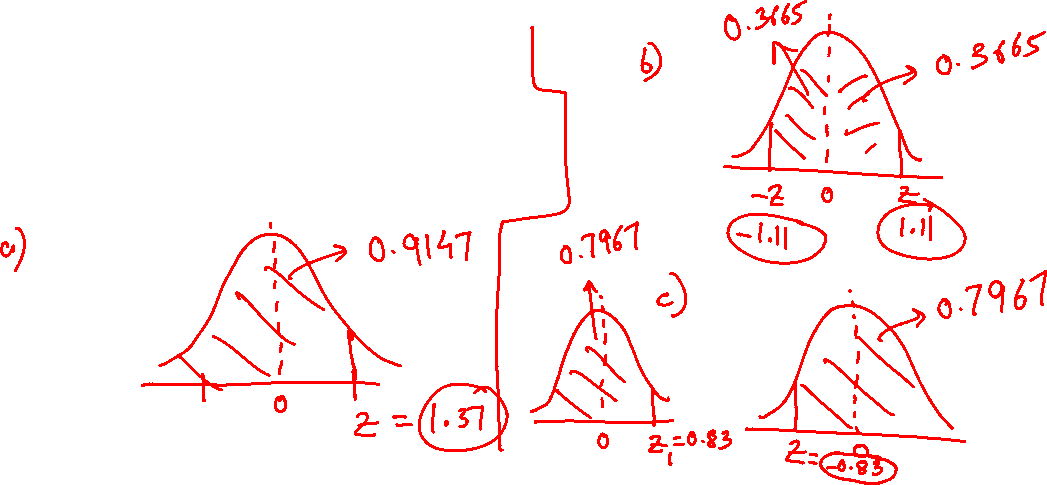 a)
0.9147
0
Z = 1.37
b)
0.3665
0.3665
-Z 0 Z
-1.11 1.11
0.7967
0 Z₁=0.83
c)
0.7967
0
Z=-0.83